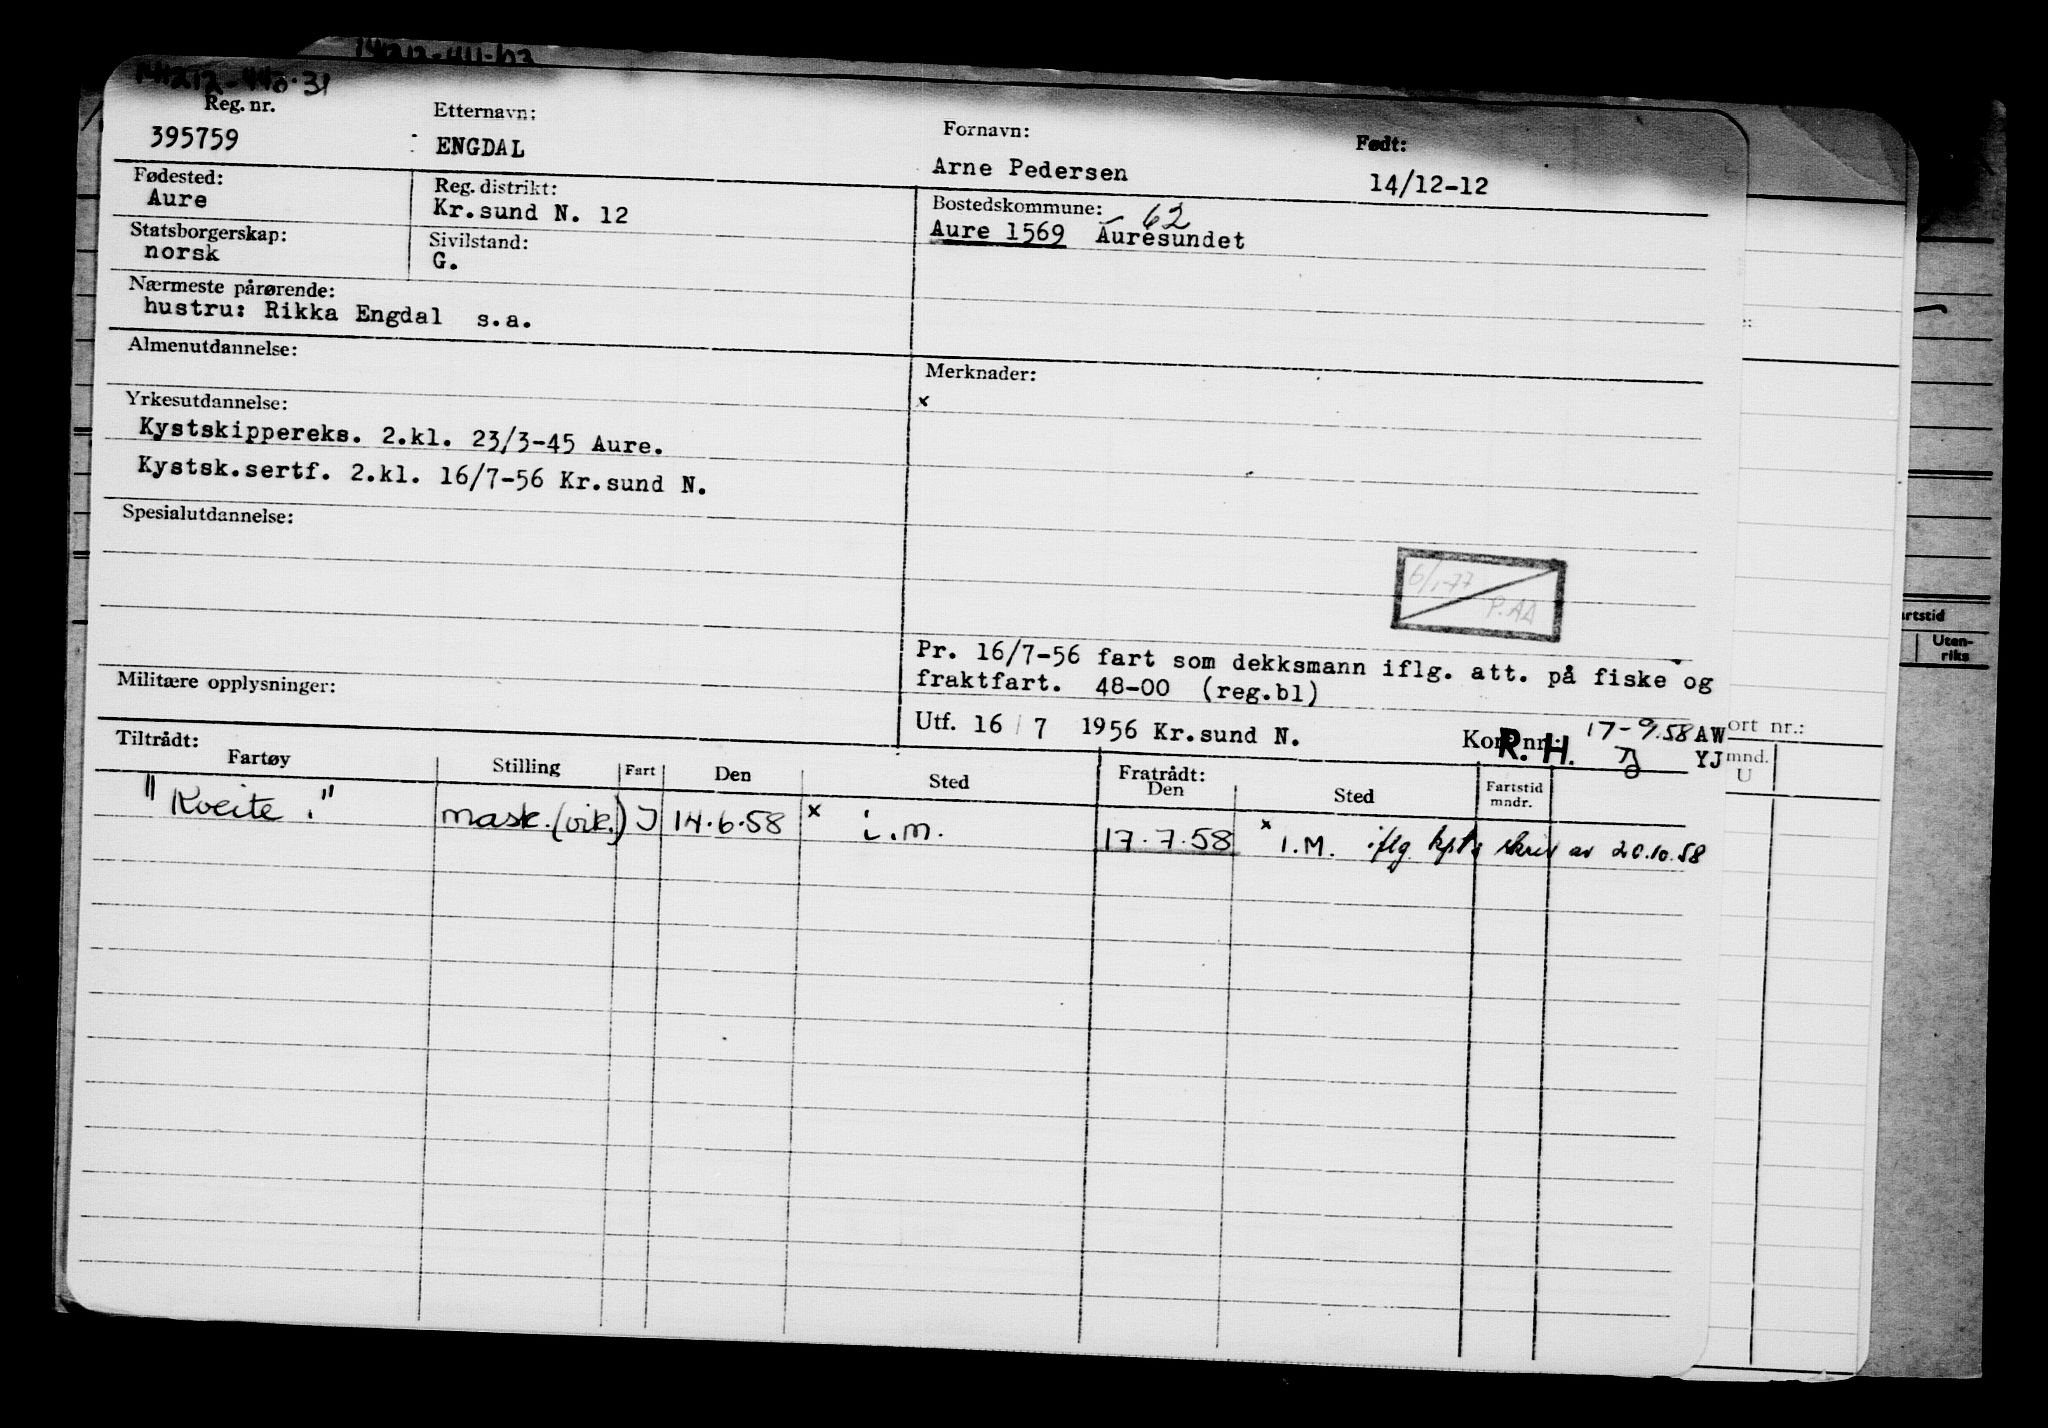 14212-44-63
141212-440·31
Reg. nr.
395759
Etternavn:
ENGDAL
Fornavn:
Arne Pedersen
Født:
14/12-12
Fødested:
Aure
Reg. distrikt:
Kr.sund N. 12
Bostedskommune:
Aure 1569 Auresundet
62
Statsborgerskap:
norsk
Sivilstand:
G.
Nærmeste pårørende:
hustru: Rikka Engdal s.a.
Almenutdannelse:
Merknader:
x
Yrkesutdannelse:
Kystskippereks. 2.kl. 23/3-45 Aure.
Kystsk.sertf. 2.kl. 16/7-56 Kr.sund N.
Spesialutdannelse:
6/1-77
P.AA
Pr. 16/7-56 fart som dekksmann iflg. att. på fiske og
fraktfart. 48-00 (reg.bl)
Militære opplysninger:
Utf. 16/7 1956 Kr.sund N.
R. H.
17-9.58 AW
YJ
Tiltrådt:
Fartøy
Stilling
Fart
Den
Sted
Fratrådt:
Den
Sted
Fartstid
mndr.
"Kveite."
mask.(vik.) J 14.6.58 x i.m.
17.7.58 x I.M. iflg kpts skriv av 20.10.58
ort nr.:
mnd.
U
artstid
Uten-
riks